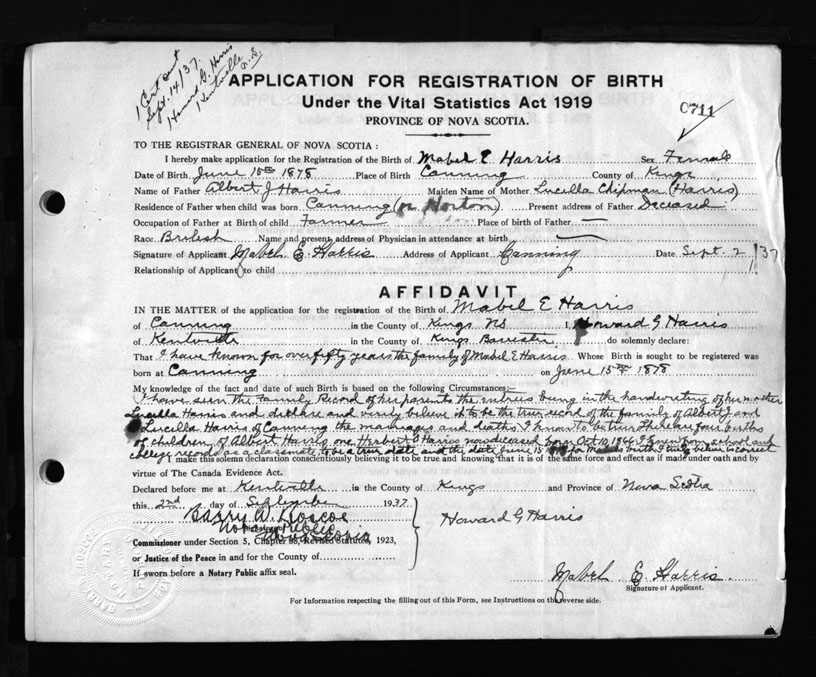 1 Cert out
Sept. 14/37.
Howard G. Harris
Kentville
N.S.
APPLICATION FOR REGISTRATION OF BIRTH
Under the Vital Statistics Act 1919
PROVINCE OF NOVA SCOTIA.
0711
TO THE REGISTRAR GENERAL OF NOVA SCOTIA:
I hereby make application for the Registration of the Birth of Mabel E Harris Sex Female
Date of Birth June 15th 1878 Place of Birth Canning County of Kings
Name of Father Albert J Harris Maiden Name of Mother Lucilla Chipman (Harris)
Residence of Father when child was born Canning (or Horton) Present address of Father Deceased
Occupation of Father at Birth of child Farmer Place of birth of Father —
Race British Name and present address of Physician in attendance at birth —
Signature of Applicant Mabel E Harris Address of Applicant Canning Date Sept. 2/37
Relationship of Applicant to child
AFFIDAVIT
IN THE MATTER of the application for the registration of the Birth of Mabel E Harris
of Canning in the County of Kings NS I, Howard G Harris
of Kentville in the County of Kings Barrister do solemnly declare:
That I have known for over fifty years the family of Mabel E Harris Whose Birth is sought to be registered was
born at Canning on June 15th 1878
My knowledge of the fact and date of such Birth is based on the following Circumstances:—
I have seen the Family Record of her parents the entries being in the handwriting of her mother
Lucilla Harris and declare and verily believe it to be the true record of the family of Albert J and
Lucilla Harris of Canning the marriages and deaths I know to be true four births
of children of Albert Harris one Herbert Harris now deceased born Oct 10 I know from school and
college records as a classmate to be a true date and the date June 15 for birth I truly believe is correct
I make this solemn declaration conscientiously believing it to be true and knowing that it is of the same force and effect as if made under oath and by
virtue of The Canada Evidence Act.
Declared before me at Kentville in the County of Kings and Province of Nova Scotia
this 2nd day of September 1937
Barry W. Roscoe
Notary Public
Nova Scotia
Howard G Harris
Commissioner under Section 5, Chapter 38, Revised Statutes, 1923,
or Justice of the Peace in and for the County of
If sworn before a Notary Public affix seal.
Mabel E. Harris.
Signature of Applicant.
For Information respecting the filling out of this Form, see Instructions on the reverse side.